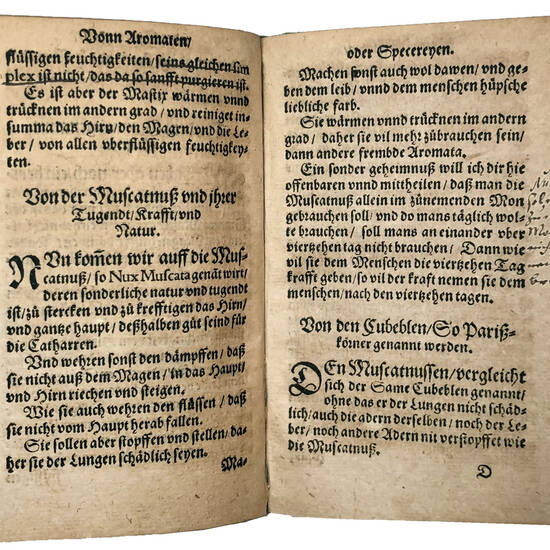 Vonn Aromaten/
flüssigen feuchtigkeiten/ seins gleichen sim
plex ist nicht/ das da so sanfft purgieren ist.
Es ist aber der Mastix wärmen vnnd
trücknen im andern grad/ vnd reiniget in
summa das Hirn/ den Magen/ vnd die Le-
ber/ von allen vberflüssigen feuchtigkey-
ten.
Von der Muscatnuß vnd jhrer
Tugendt/ Krafft/ vnd
Natur.
NVn kom̃en wir auff die Mus-
catnuß/ so Nux Muscata genãt wirt/
deren sonderliche natur vnd tugendt
ist/ zů stercken vnd zů krefftigen das Hirn/
vnd gantze haupt/ deßhalben gůt seind für
die Catharren.
Vnd wehren sonst den dämpffen/ daß
sie nicht auß dem Magen/ in das Haupt/
vnd Hirn riechen vnd steigen.
Wie sie auch wehrten den flüssen/ daß
sie nicht vom Haupt herab fallen.
Sie sollen aber stopffen vnd stellen/ da-
her sie der Lungen schädlich seyen.
Ma-
oder Specereyen.
Machen sonst auch wol dawen/ vnd ge-
ben dem leib/ vnnd dem menschen hüpsche
liebliche farb.
Sie wärmen vnnd trücknen im andern
grad/ daher sie vil mehr zůbrauchen sein/
dann andere frembde Aromata.
Ein sonder geheimnuß will ich dir hie
offenbaren vnnd mittheilen/ daß man die
Muscatnuß allein im zůnemenden Mon
gebrauchen soll/ vnd do mans täglich wol-
te brauchen/ soll mans an einander vber
viertzehen tag nicht brauchen/ Dann wie
vil sie dem Menschen die viertzehen Tag
krafft geben/ so vil der kraft nemen sie dem
menschen/ nach den viertzehen tagen.
Von den Cubeblen/ So Pariß-
körner genannt werden.
DEn Muscatnussen/ vergleicht
sich der Same Cubeblen genannt/
ohne das er der Lungen nicht schäd-
lich/ auch die adern derselben/ noch der Le-
ber/ noch andere Adern nit verstopffet wie
die Muscatnuß.
D